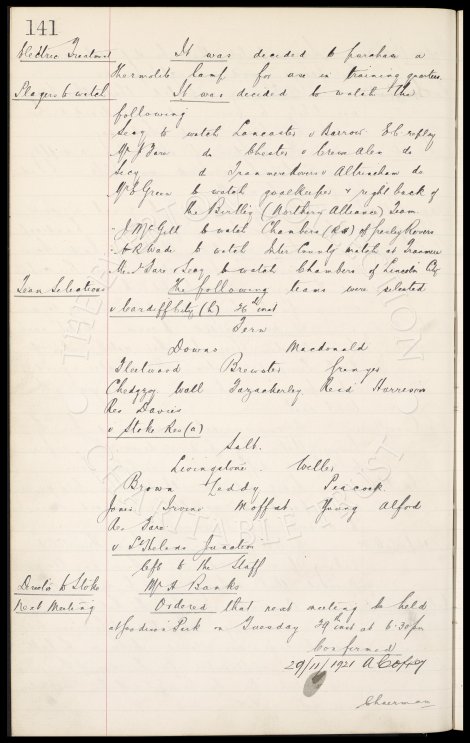 141
Electric Treatment It was decided to purchase a
Thermolite lamp for use in training quarters.
Players to watch It was decided to watch the
following
Secy to watch Lancaster v Barrow E C replay
Mr J Fare do Chester v Crewe Alex do
Secy d Tranmere Rovers v Altrincham do
Mr E Green to watch goalkeeper & right back of
the (Northern Alliance) Team.
J McGill to watch Chambers (R H) of Rovers
H R Wade to watch Inter County match at Tranmere
Mr J Fare & Secy to watch Chambers of Lincoln City
Team Selections The following teams were selected
v Cardiff City (h) 26th inst
Fern
Downs Macdonald
Fleetwood Brewster Grenyer
Chedgzoy Wall Fazackerley Reid Harrison
Res Davies
v Stoke Res (a)
Salt.
Livingstone. Weller
Brown Leddy Peacock
Jones Irvine Moffat Young Alford
Res Fare
v St Helens Junction
Left to the Staff
Director to Stoke Mr A Banks
Next Meeting Ordered that next meeting be held
at Goodison Park on Tuesday 29th inst at 6.30 pm
Confirmed
29/11/1921 A Coffey
Chairman
THE EVERTON COLLECTION
CHARITABLE TRUST